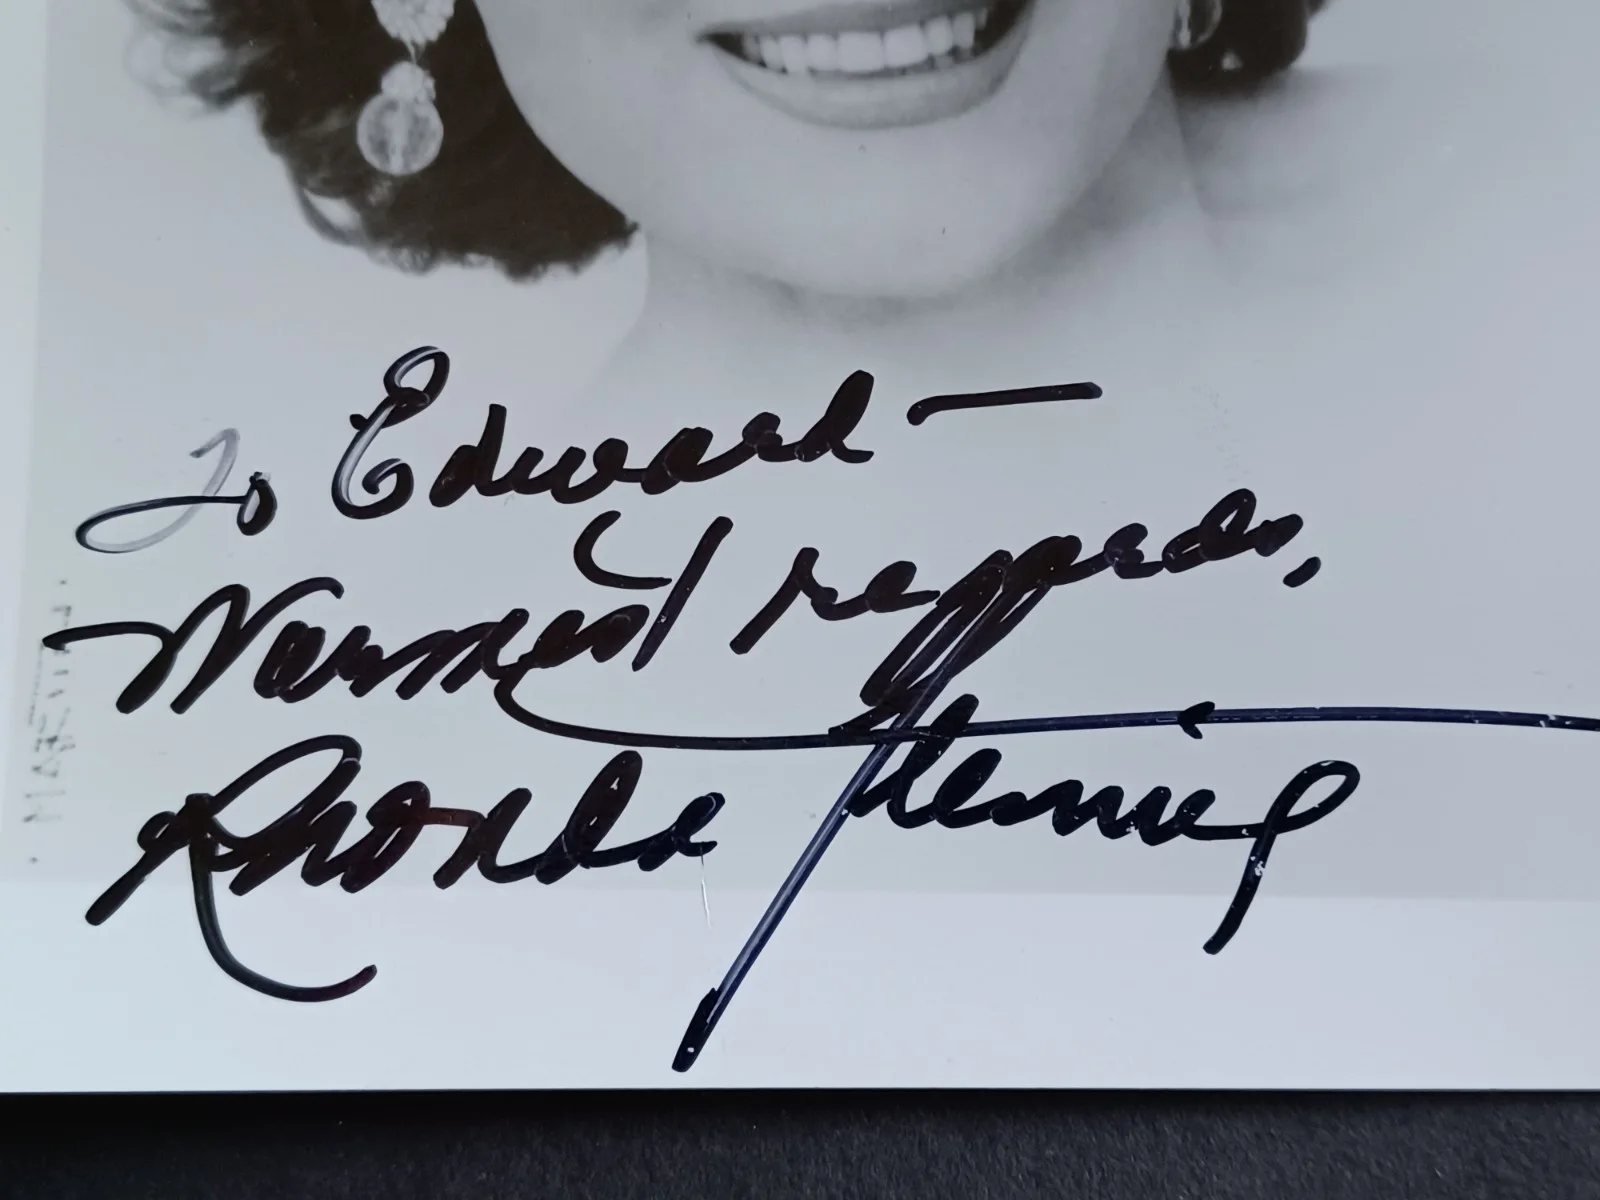 To Edward —
Warmest regards,
Rhonda Fleming